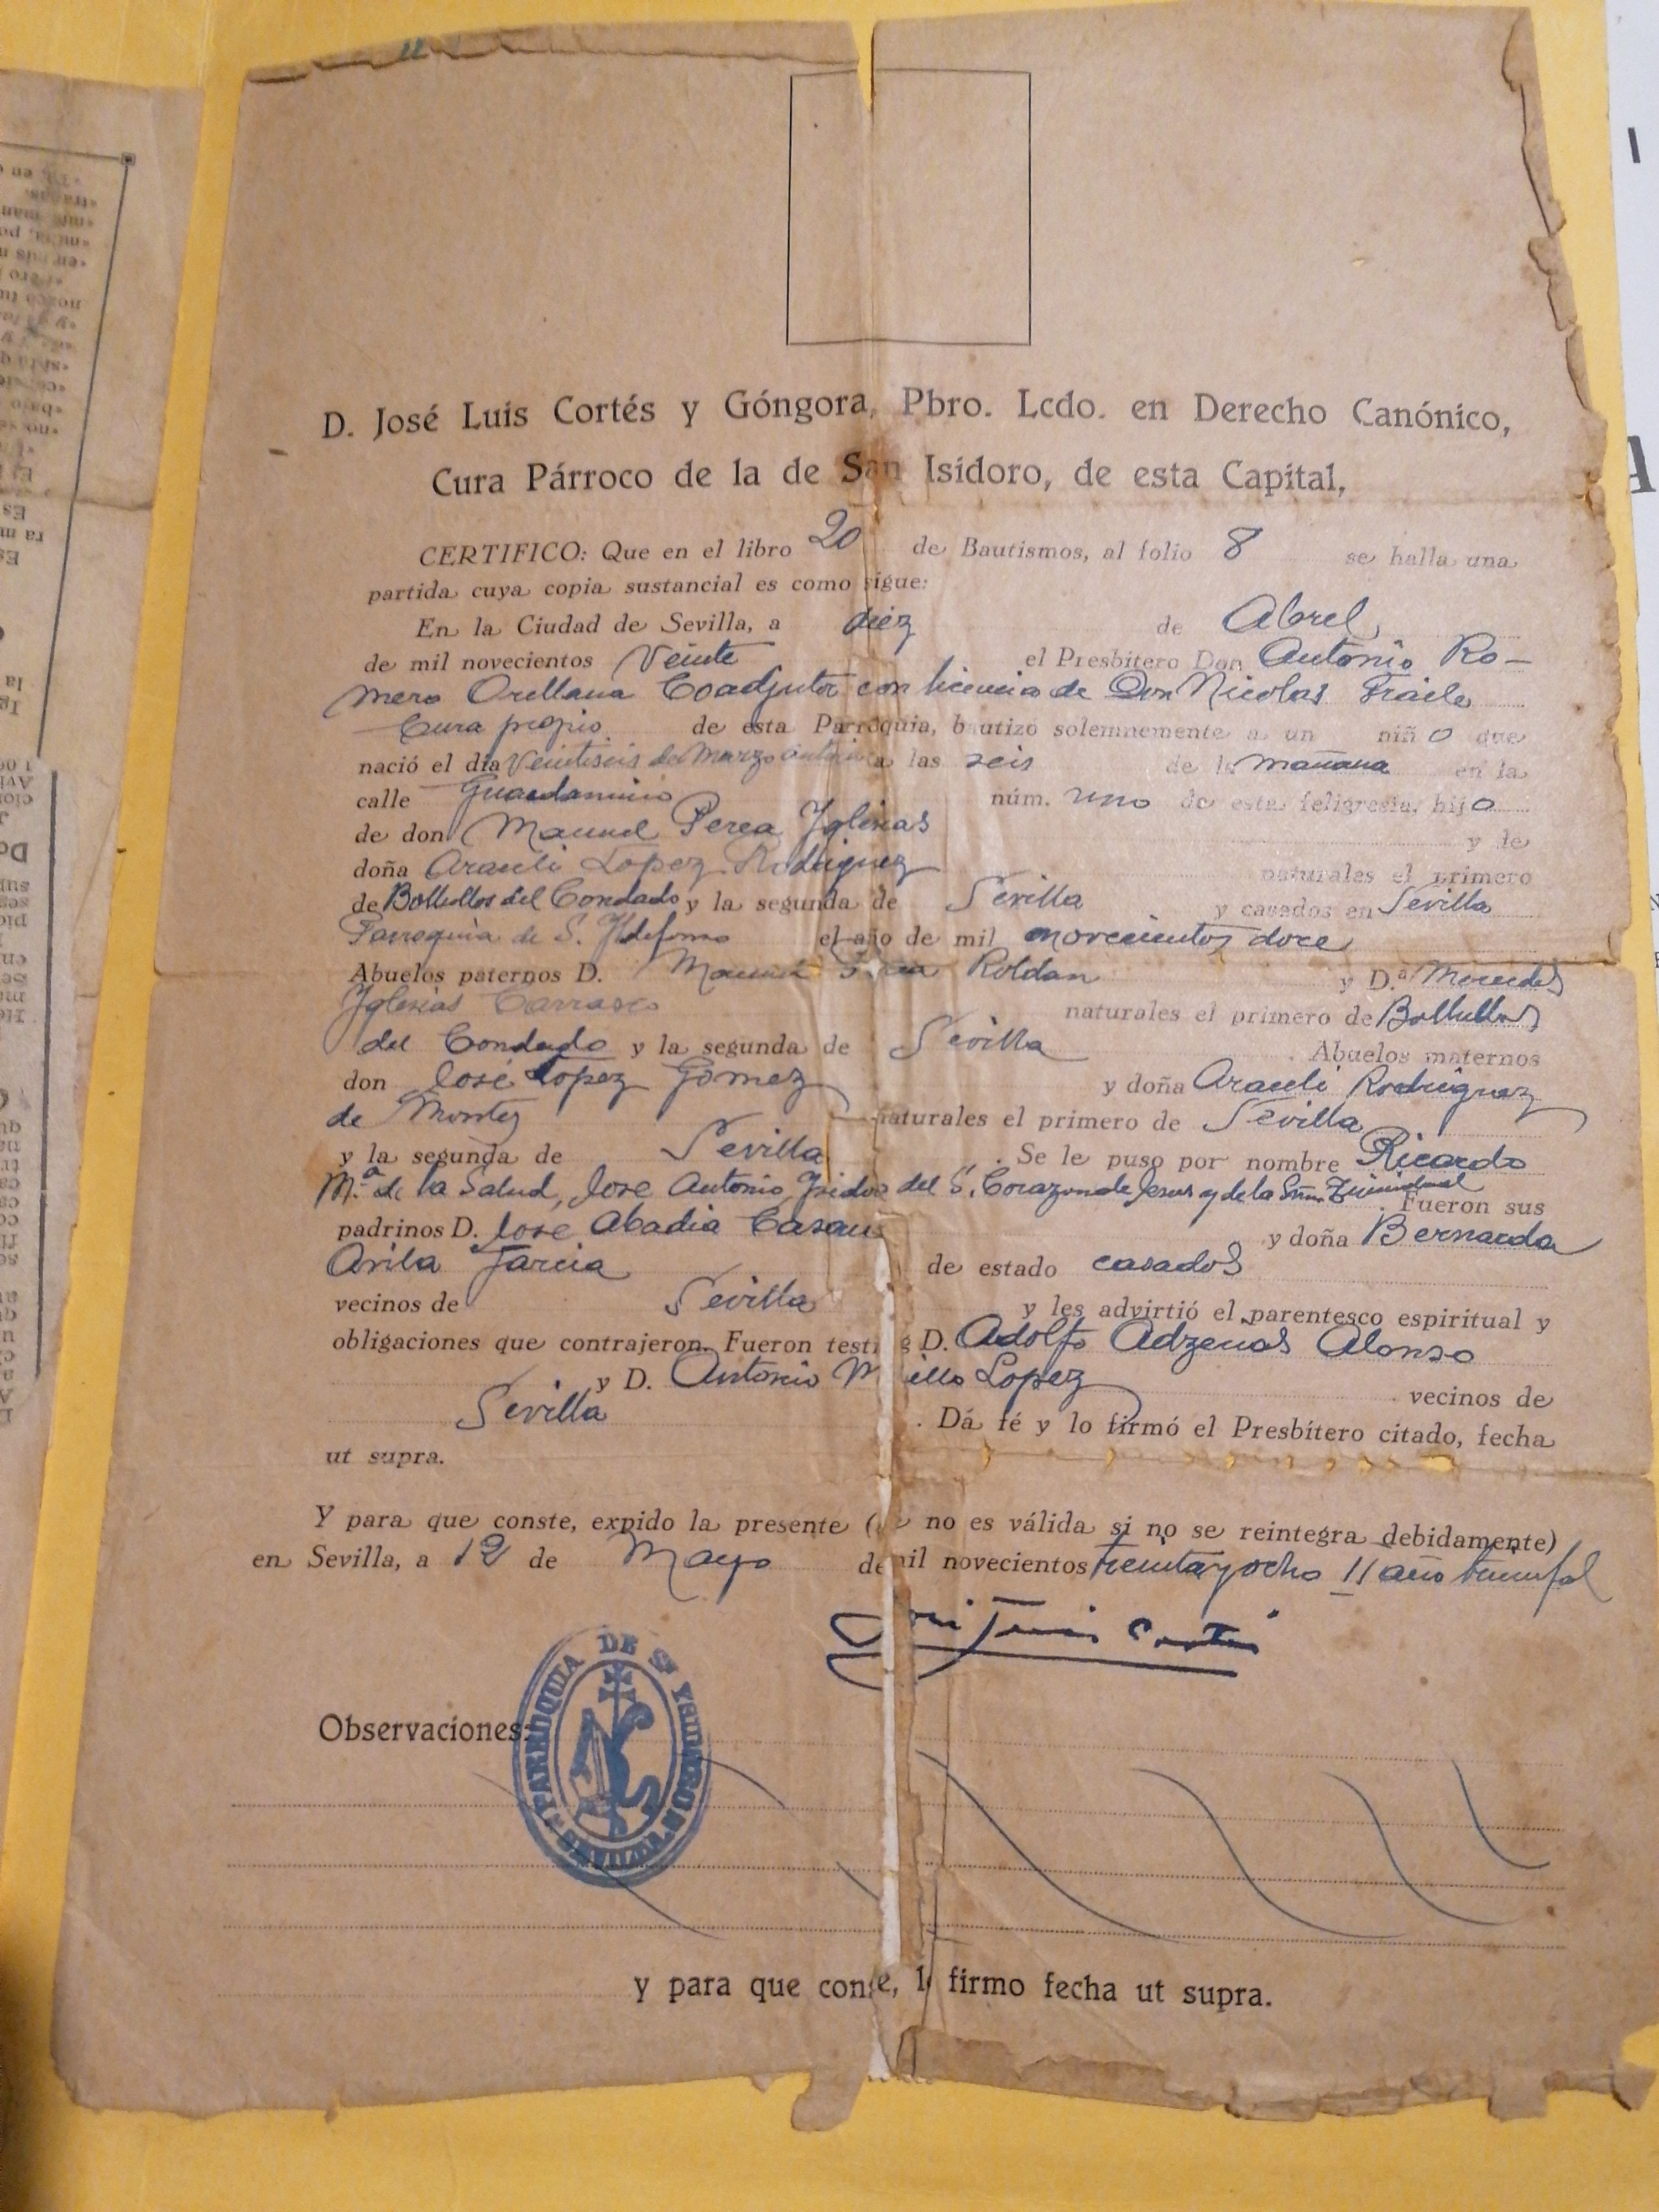 D. José Luis Cortés y Góngora, Pbro. Lcdo. en Derecho Canónico,
Cura Párroco de la de San Isidoro, de esta Capital,
CERTIFICO: Que en el libro 20 de Bautismos, al folio 8 se halla una
partida cuya copia sustancial es como sigue:
En la Ciudad de Sevilla, a diez de Abrel
de mil novecientos Veinte el Presbítero Don Antonio Ro-
mero Orellana Coadjutor con licencia de Don Nicolas Fraile
Cura propio de esta Parroquia, bautizó solemnemente a un niño que
nació el día Veintiseis de Marzo a las seis de la mañana en la
calle núm. uno de esta feligresía, hijo
de don Manuel Perea Yglesias y de
doña Araceli Lopez Rodriguez naturales el primero
de Bollullos del Condado y la segunda de Sevilla y casados en Sevilla
Parroquia de S. Yldefonso el año de mil novecientos doce
Abuelos paternos D. Manuel Perea Roldan y D.ª Mercedes
Yglesias Carrasco naturales el primero de Bollullos
del Condado y la segunda de Sevilla . Abuelos maternos
don José Lopez Gomez y doña Araceli Rodriguez
de Montes naturales el primero de Sevilla
y la segunda de Sevilla . Se le puso por nombre Ricardo
M.ª de la Salud, Jose Antonio Isidoro del S. Corazon de Jesus y de la Sma. Trinidad . Fueron sus
padrinos D. Jose Abadia y doña Bernarda
Avila Garcia de estado casados
vecinos de Sevilla y les advirtió el parentesco espiritual y
obligaciones que contrajeron. Fueron testigos D. Adolfo Alonso
y D. Antonio Lopez vecinos de
Sevilla . Dá fé y lo firmó el Presbítero citado, fecha
ut supra.
Y para que conste, expido la presente (que no es válida si no se reintegra debidamente)
en Sevilla, a 12 de Mayo de mil novecientos treinta y ocho II año triunfal
José Luis Cortés
Observaciones:
PARROQUIA DE Sn YSIDORO SEVILLA
y para que conste, lo firmo fecha ut supra.